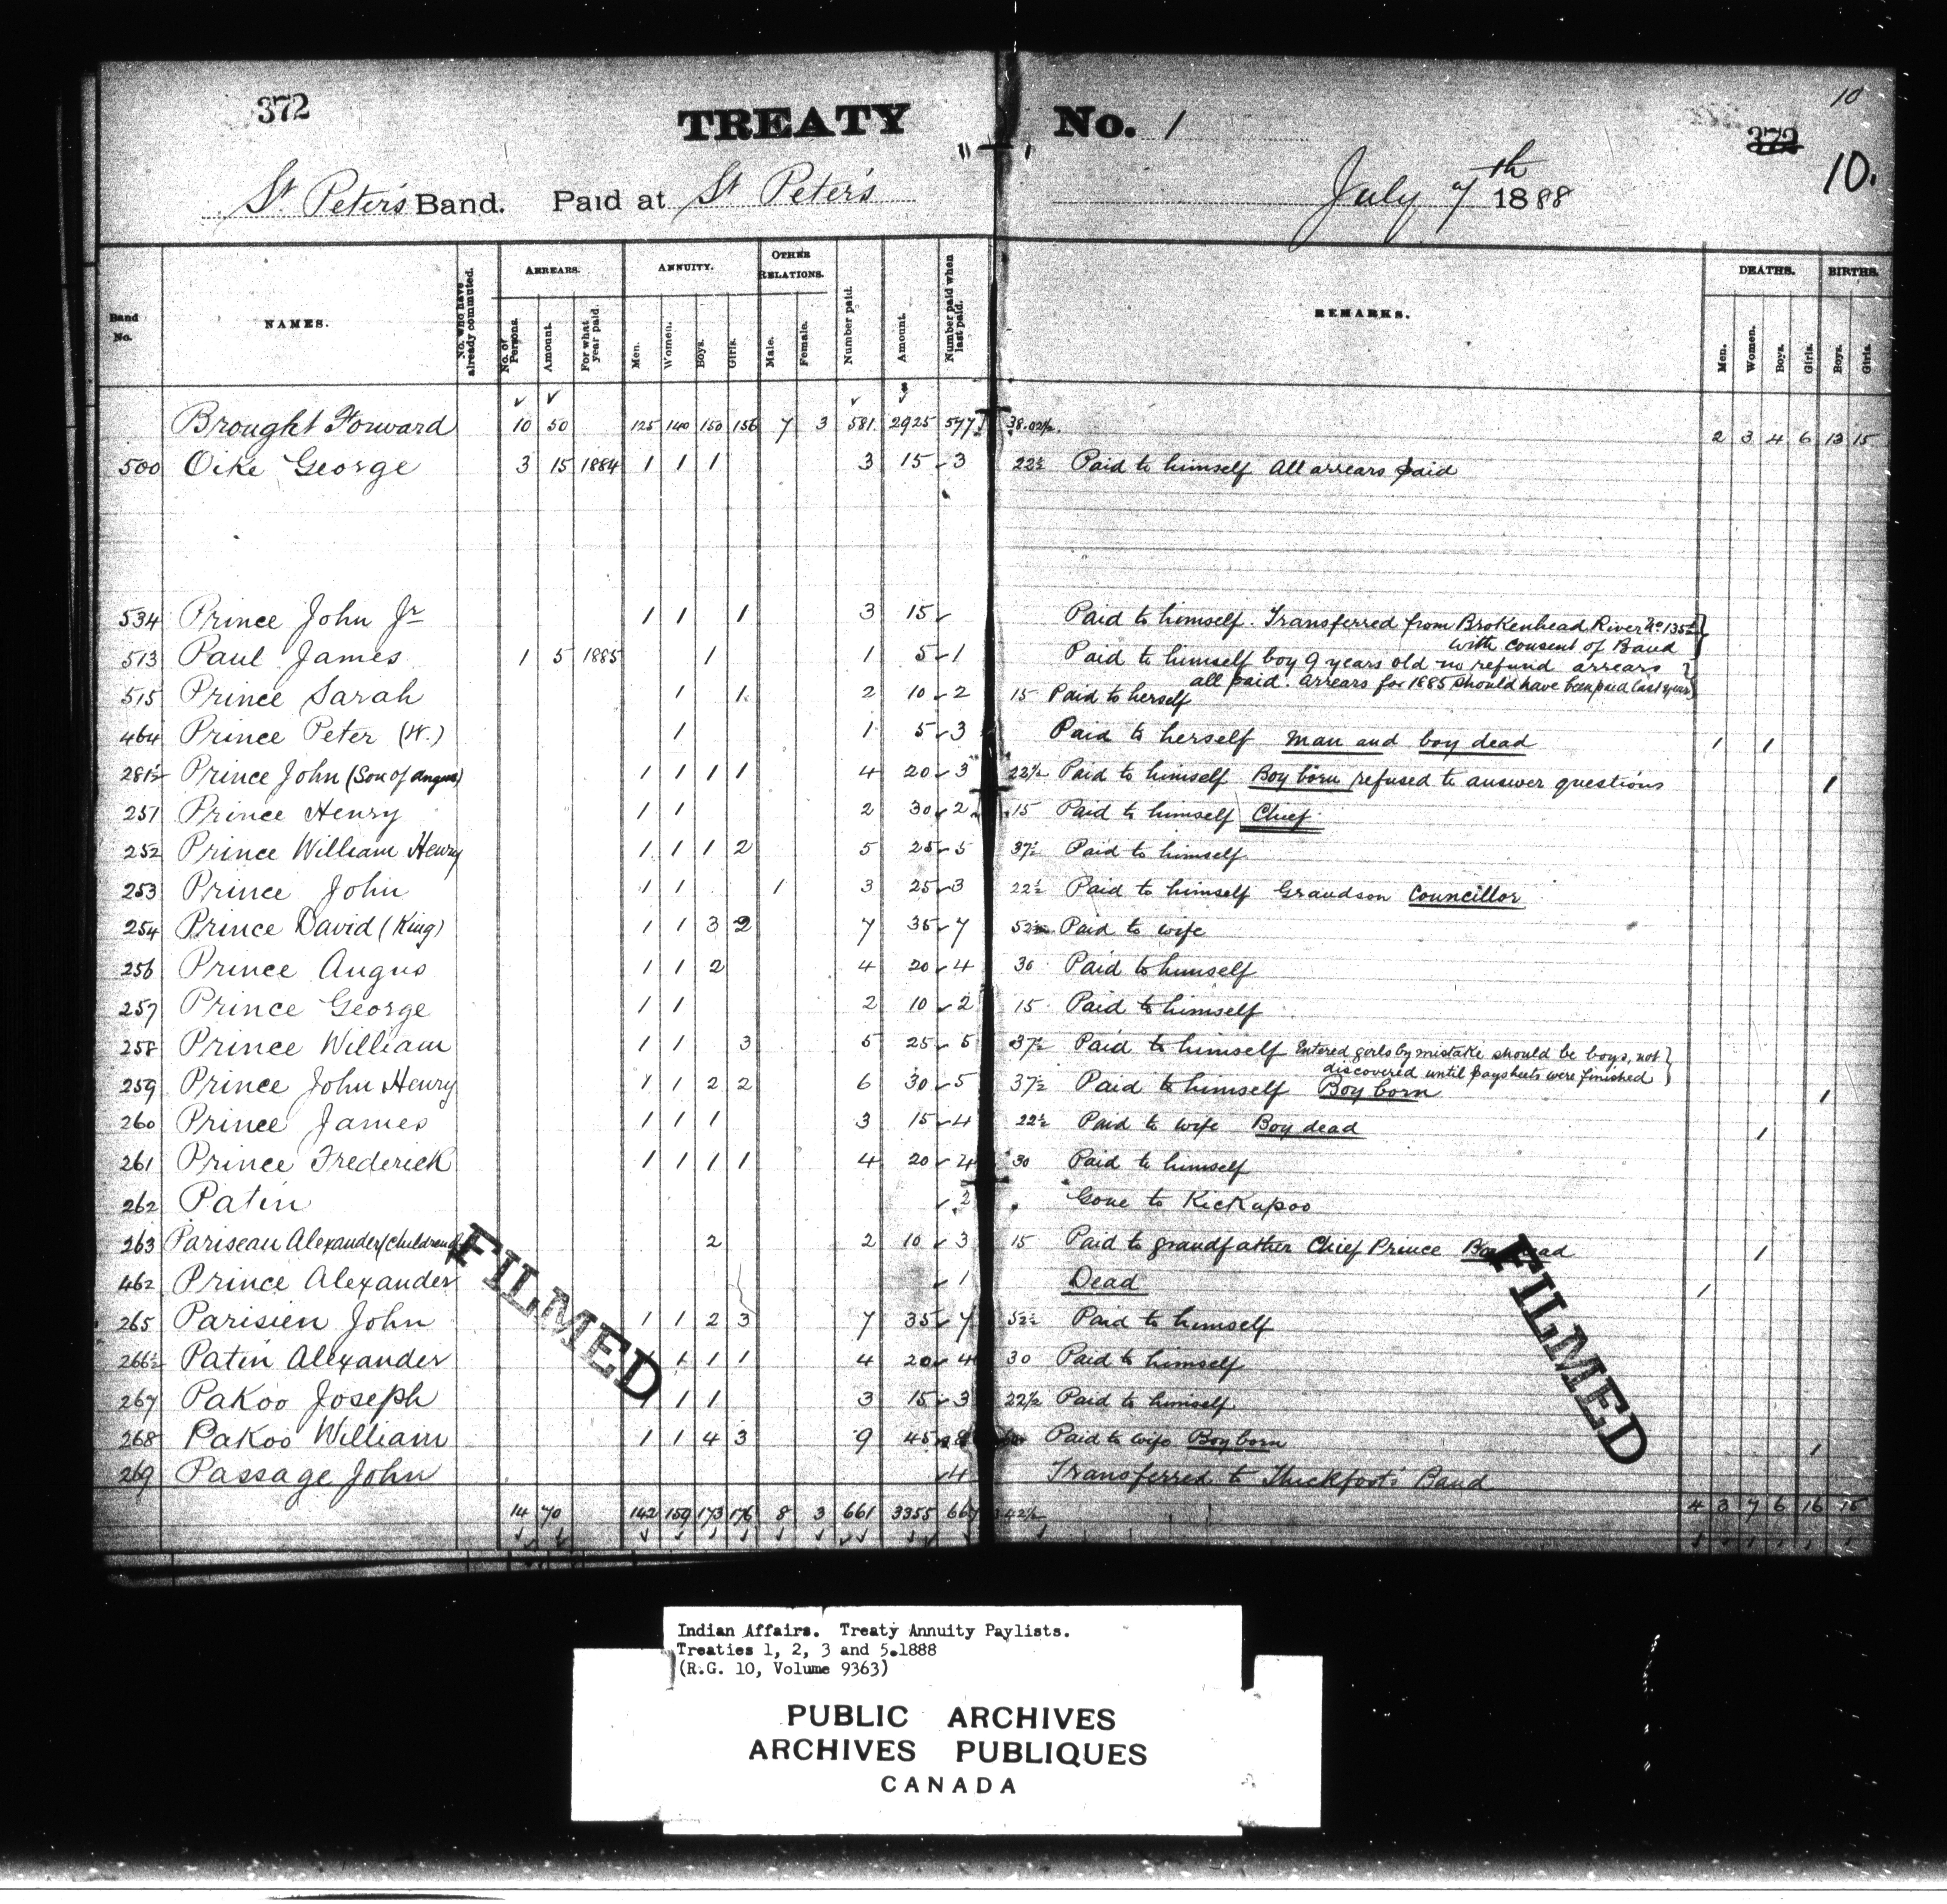 372
TREATY No. 1
10
372
10.
St Peter's Band. Paid at St Peter's July 7th 1888
Band No. NAMES. No. who have already commuted. ARREARS. No. of Persons. Amount. For what year paid. ANNUITY. Men. Women. Boys. Girls. OTHER RELATIONS. Male. Female. Number paid. Amount. Number paid when last paid. REMARKS. DEATHS. Men. Women. Boys. Girls. BIRTHS. Boys. Girls.
Brought Forward 10 50 125 140 150 156 7 3 581 2925 577 38.02½ 2 3 4 6 13 15
500 Oike George 3 15 1884 1 1 1 3 15 3 22½ Paid to himself All arrears paid
534 Prince John Jr 1 1 1 3 15 Paid to himself. Transferred from Brokenhead River No 135½
with consent of Band
513 Paul James 1 5 1885 1 1 5 1 Paid to himself boy 9 years old no refund arrears
all paid. Arrears for 1885 should have been paid last year
515 Prince Sarah 1 1 2 10 2 15 Paid to herself
464 Prince Peter (W.) 1 1 5 3 Paid to herself man and boy dead 1 1
281½ Prince John (Son of Angus) 1 1 1 1 4 20 3 22½ Paid to himself Boy born refused to answer questions 1
251 Prince Henry 1 1 2 30 2 15 Paid to himself Chief
252 Prince William Henry 1 1 1 2 5 25 5 37½ Paid to himself
253 Prince John 1 1 1 3 25 3 22½ Paid to himself Grandson Councillor
254 Prince David (King) 1 1 3 2 7 35 7 52½ Paid to wife
256 Prince Angus 1 1 2 4 20 4 30 Paid to himself
257 Prince George 1 1 2 10 2 15 Paid to himself
258 Prince William 1 1 3 5 25 5 37½ Paid to himself Entered girls by mistake should be boys, not
discovered until paysheets were finished
259 Prince John Henry 1 1 2 2 6 30 5 37½ Paid to himself Boy born 1
260 Prince James 1 1 1 3 15 4 22½ Paid to wife Boy dead 1
261 Prince Frederick 1 1 1 1 4 20 4 30 Paid to himself
262 Patin 2 Gone to Kickapoo
263 Pariseau Alexander (children) 2 2 10 3 15 Paid to grandfather Chief Prince Boy dead 1
462 Prince Alexander 1 Dead 1
265 Parisien John 1 1 2 3 7 35 7 52½ Paid to himself
266½ Patin Alexander 1 1 1 4 20 4 30 Paid to himself
267 Pakoo Joseph 1 1 3 15 3 22½ Paid to himself
268 Pakoo William 1 1 4 3 9 45 8 Paid to wife Boy born 1
269 Passage John 4 Transferred to Thickfoot's Band
14 70 142 159 173 176 8 3 661 3355 667 42½ 4 3 7 6 16 15
FILMED
FILMED
Indian Affairs. Treaty Annuity Paylists.
Treaties 1, 2, 3 and 5.1888
(R.G. 10, Volume 9363)
PUBLIC ARCHIVES
ARCHIVES PUBLIQUES
CANADA